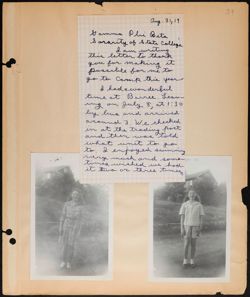 Aug. 31, 19
Gamma Phi Beta
Sorority of State College
I am writing
this letter to thank
you for making it
possible for me to
go to camp this year
I had a wonderful
time at Buree
on July, 8, at 1:30
by bus and arrived
around 3. We checked
in at the trading post
and then was told
what unit to go
to I enjoyed swimming
very much and some
times wished we had
it two or three times